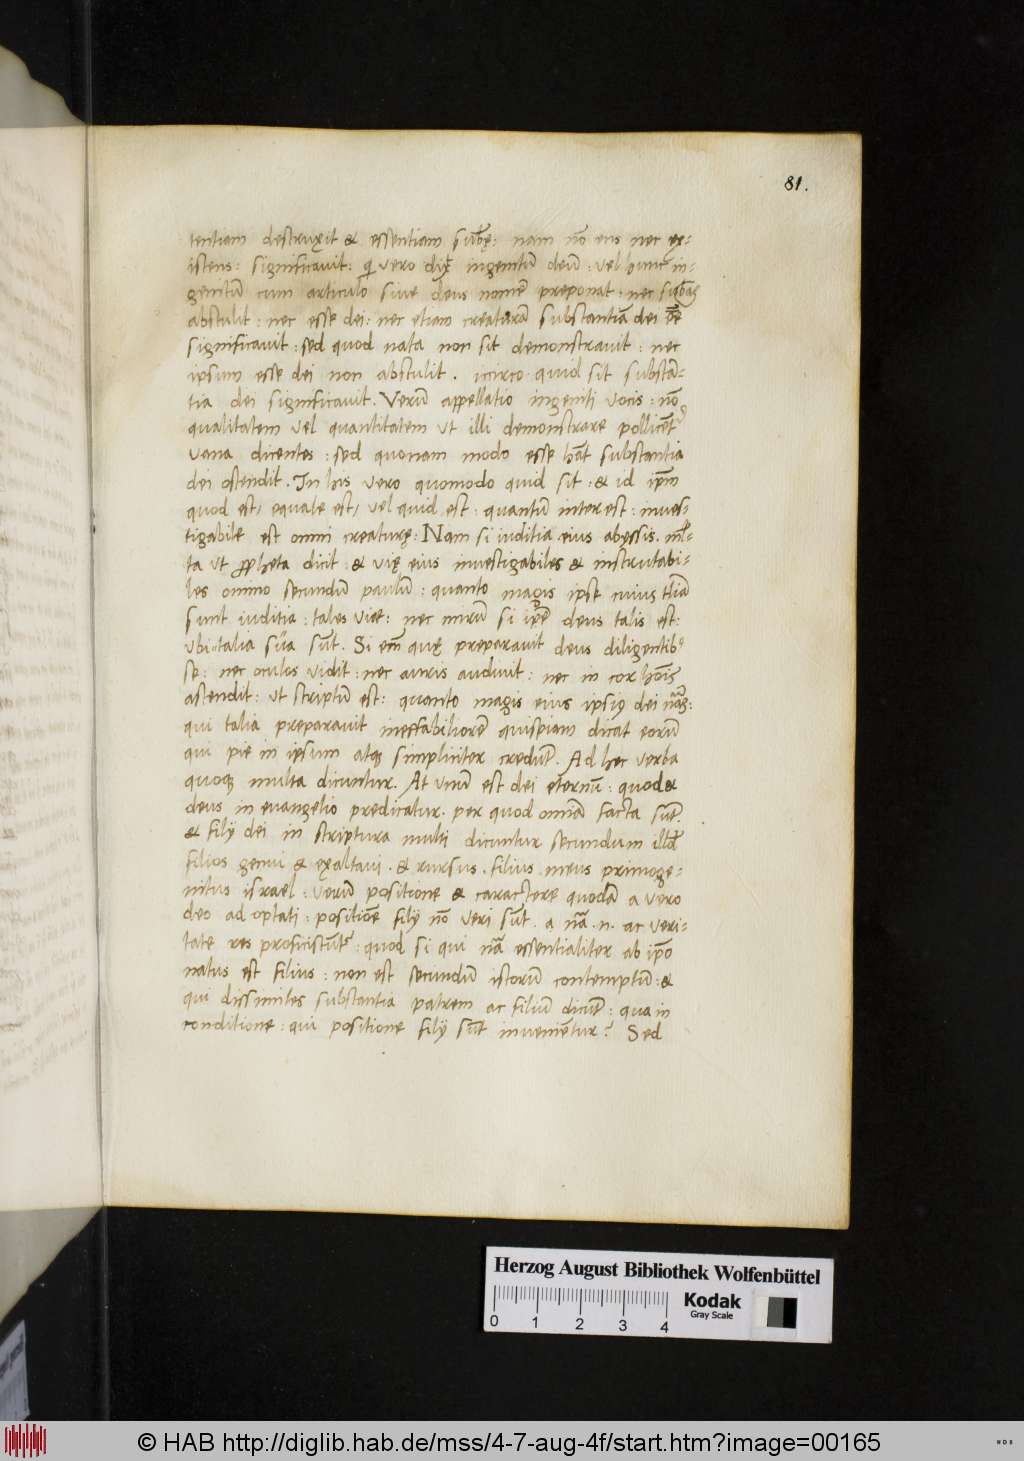 81.
tentiam destruxit & essentiam sub̅ę: nam no̅ ens nec ex-
istens: significavit: qi vero dix̅ ingenitu̅ deu̅: vel hunc in-
genitu̅ cum articulo sive deus nome̅ preponat: nec sub̅as
abstulit: nec esse dei: nec etiam creatura̅ substantia̅ dei
significavit: sed quod nata non sit demonstravit: nec
ipsum esse dei non abstulit. icirco quid sit substa̅-
tia dei significavit. Veru̅ appellatio ingeniti vocis: no̅
qualitatem vel quantitatem ut illi demonstrare pollice̅t
vana dicentes: sed quonam modo esse ha̅t substantia
dei ostendit. In his vero quomodo quid sit: & id ip̅m
quod est, equale est, vel quid est: quantu̅ interest: inves-
tigabile est omni creaturę: Nam si iuditia eius abyssis. ml̅-
ta ut propheta dicit: & vię eius investigabiles & instrutabi-
les omino secundu̅ paulu̅: quanto magis ipse cuius
sunt iuditia: tales viae: nec miru̅ si ip̅e deus talis est:
ubi talia sua su̅t. Si em̅ quę preparavit deus diligentib9
se: nec oculus vidit: nec auris audivit: nec in cor ho̅is
astendit: ut scriptu̅ est: quanto magis eius ipsiq dei na̅s:
qui talia preparavit ineffabiliore̅ quispiam dicat eoru̅
qui pie in ipsum atq simpliciter credu̅t. Ad hec verba
quoq multa dicuntur. At unu̅ est dei eternu̅: quod &
deus in evangelio predicatur. per quod omnia facta su̅t.
& filij dei in scriptura multi dicuntur secundum illud
filios genui & exaltavi. & rursus. filius meus primoge-
nitus israel: veru̅ positione & caractere quoda̅ a vero
deo ad optati: positio̅e filij no̅ veri su̅t. a na̅. n. ac veri-
tate res proficistu̅t: quod si qui na̅ essentialiter ab ip̅o
natus est filius: non est secundu̅ istoru̅ contemptu̅: &
qui dissimiles substantia patrem ac filiu̅ dicu̅t: qua in
conditione: qui positione filij su̅t invenie̅tur? Sed
Herzog August Bibliothek Wolfenbüttel
0 1 2 3 4
Kodak
Gray Scale
© HAB http://diglib.hab.de/mss/4-7-aug-4f/start.htm?image=00165